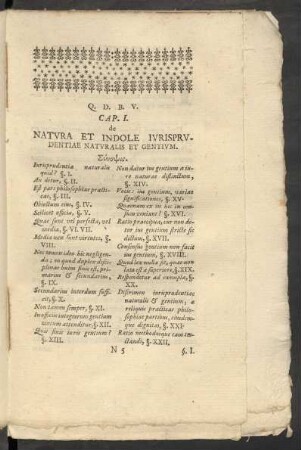 Q. D. B. V.
CAP. I.
de
NATVRA ET INDOLE IVRISPRV-
DENTIAE NATVRALIS ET GENTIVM.
Σύνοψις.
Iurisprudentia naturalis
quid? §. I.
An detur, §. II.
Est pars philosophiae practi-
cae, §. III.
Obiectum eius, §. IV.
Scilicet officia, §. V.
Quae sunt vel perfecta, vel
§. VI. VII.
Media non sunt virtutes, §.
VIII.
Nec tamen ideo his negligen-
da; en quid duplex disci-
plinae huius finis est, pri-
marius & secundarius,
§. IX.
Secundarius interdum suffi-
cit, §. X.
Non tamen semper, §. XI.
In officiis integrarum gentium
vnicus attenditur, §. XII.
Quid sint iuris gentium?
§. XIII.
Non datur ius gentium a iu-
re naturae distinctum,
§. XIV.
Vocis: ius gentium, variae
significationes, §. XV.
Quaenam ex iis huc in cen-
sum veniant? §. XVI.
Ratio praecipua, cur non de-
tur ius gentium stricte sic
dictum, §. XVII.
Consensus gentium non facit
ius gentium, §. XVIII.
Quod lex nulla sit, quae ab-
lata est a superiore, §. XIX.
Respondetur ad exempla, §.
XX.
Discrimen iurisprudentiae
naturalis & gentium, a
reliquis practicae philo-
sophiae partibus, eiusdem-
que dignitas, §. XXI.
Ratio methodusque eam tra-
ctandi, §. XXII.
N 5
§. I.